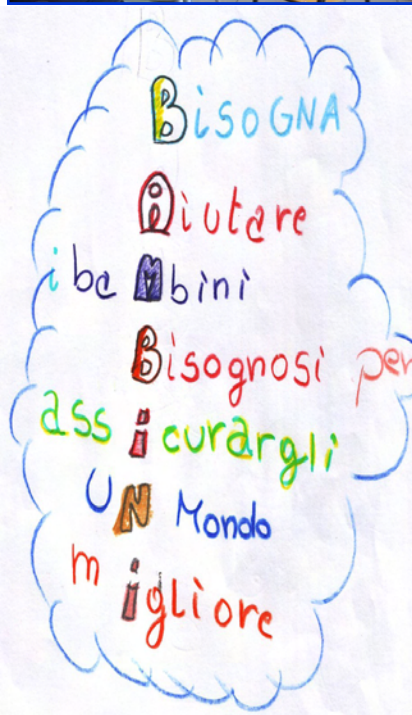 BisoGNA
Aiutare
i baMbini
Bisognosi per
assicurargli
UN Mondo
migliore